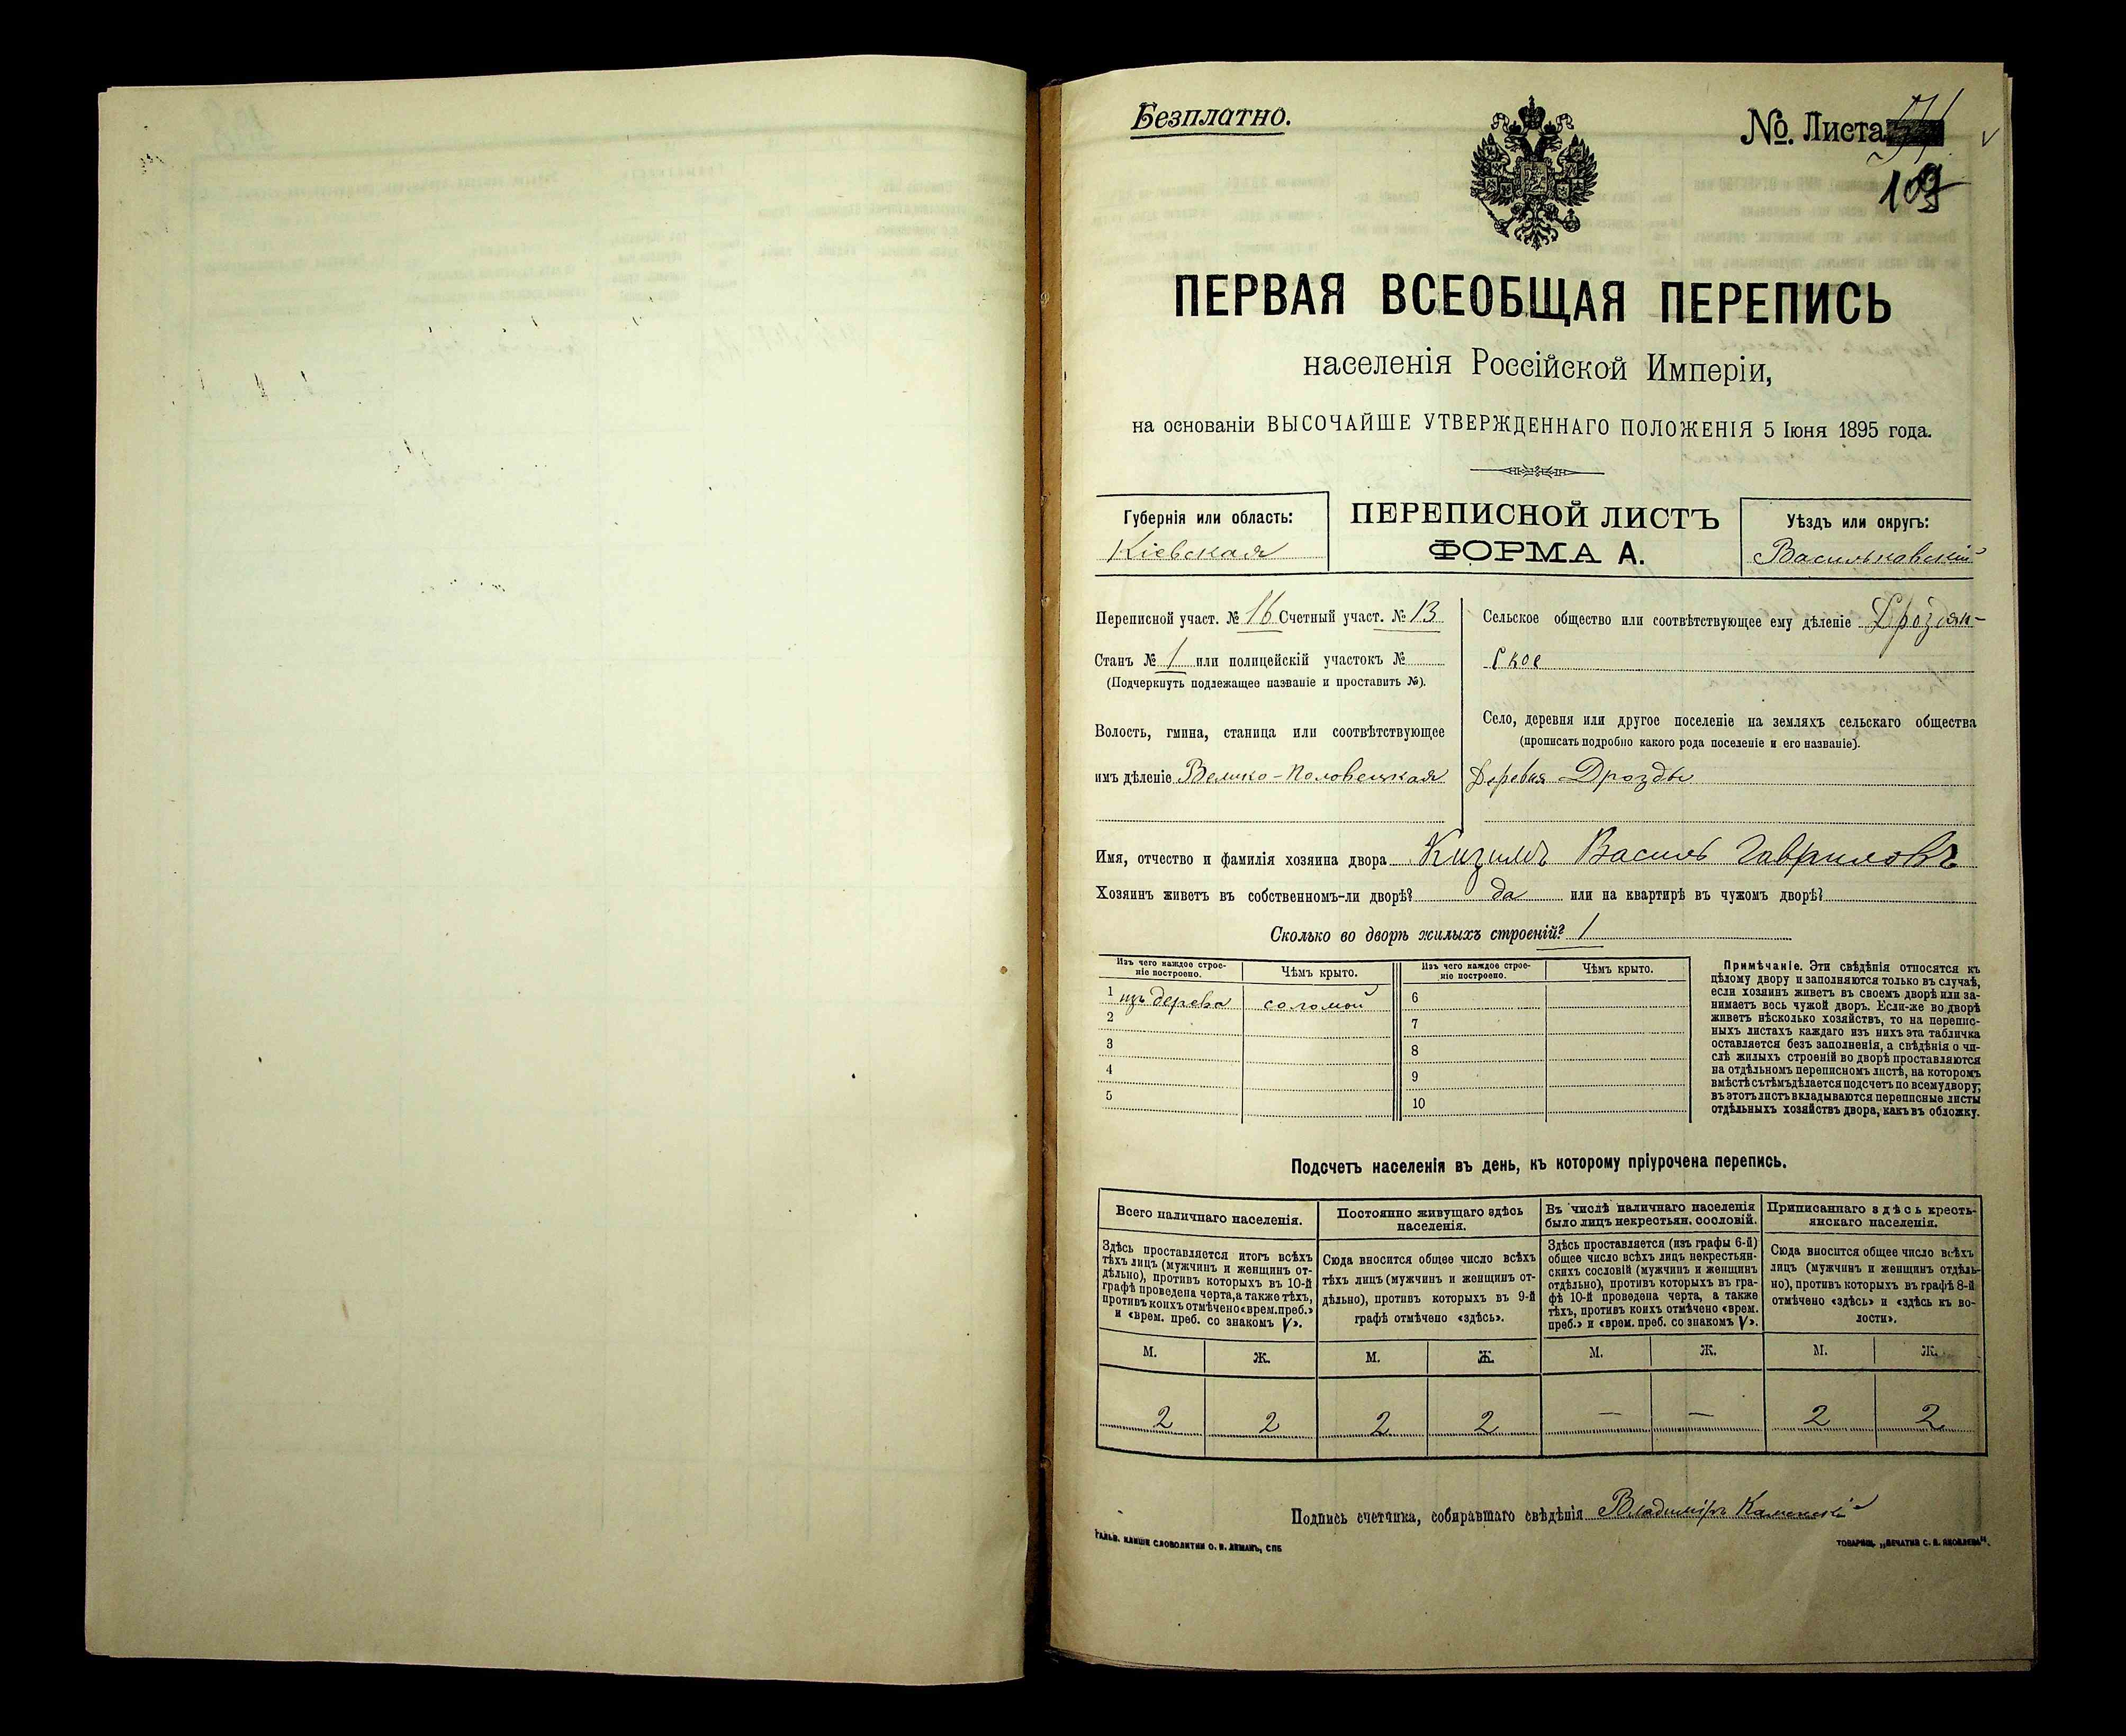 Безплатно.
№. Листа
109
ПЕРВАЯ ВСЕОБЩАЯ ПЕРЕПИСЬ
населенія Россійской Имперіи,
на основаніи ВЫСОЧАЙШЕ УТВЕРЖДЕННАГО ПОЛОЖЕНІЯ 5 Іюня 1895 года.
Губернія или область:
Кіевская
ПЕРЕПИСНОЙ ЛИСТЪ
ФОРМА А.
Уѣздъ или округъ:
Васильковскій
Переписной участ. № 16 Счетный участ. № 13
Станъ № 1 или полицейскій участокъ №
(Подчеркнуть подлежащее названіе и проставить №).
Волость, гмина, станица или соотвѣтствующее
имъ дѣленіе Велико-Половецкая
Сельское общество или соотвѣтствующее ему дѣленіе Дроздян-
ское
Село, деревня или другое поселеніе на земляхъ сельскаго общества
(прописать подробно какого рода поселеніе и его названіе).
Деревня Дрозды
Имя, отчество и фамилія хозяина двора Кизимъ Василь Гавриловъ
Хозяинъ живетъ въ собственномъ-ли дворѣ? да или на квартирѣ въ чужомъ дворѣ?
Сколько во дворѣ жилыхъ строеній? 1
Изъ чего каждое строе-
ніе построено.
Чѣмъ крыто.
Изъ чего каждое строе-
ніе построено.
Чѣмъ крыто.
1 изъ дерева соломой 6
2 7
3 8
4 9
5 10
Примѣчаніе. Эти свѣдѣнія относятся къ
цѣлому двору и заполняются только въ случаѣ,
если хозяинъ живетъ въ своемъ дворѣ или за-
нимаетъ весь чужой дворъ. Если-же во дворѣ
живетъ нѣсколько хозяйствъ, то на перепис-
ныхъ листахъ каждаго изъ нихъ эта табличка
оставляется безъ заполненія, а свѣдѣнія о чи-
слѣ жилыхъ строеній во дворѣ проставляются
на отдѣльномъ переписномъ листѣ, на которомъ
вмѣстѣ съ тѣмъ дѣлается подсчетъ по всему двору;
въ этотъ листъ вкладываются переписные листы
отдѣльныхъ хозяйствъ двора, какъ въ обложку.
Подсчетъ населенія въ день, къ которому пріурочена перепись.
Всего наличнаго населенія.
Здѣсь проставляется итогъ всѣхъ
тѣхъ лицъ (мужчинъ и женщинъ от-
дѣльно), противъ которыхъ въ 10-й
графѣ проведена черта, а также тѣхъ,
противъ коихъ отмѣчено «врем. преб.»
и «врем. преб. со знакомъ V».
Постоянно живущаго здѣсь
населенія.
Сюда вносится общее число всѣхъ
тѣхъ лицъ (мужчинъ и женщинъ от-
дѣльно), противъ которыхъ въ 9-й
графѣ отмѣчено «здѣсь».
Въ числѣ наличнаго населенія
было лицъ некрестьян. сословій.
Здѣсь проставляется (изъ графы 6-й)
общее число всѣхъ лицъ некрестьян-
скихъ сословій (мужчинъ и женщинъ
отдѣльно), противъ которыхъ въ гра-
фѣ 10-й проведена черта, а также
тѣхъ, противъ коихъ отмѣчено «врем.
преб.» и «врем. преб. со знакомъ V».
Приписаннаго здѣсь кресть-
янскаго населенія.
Сюда вносится общее число всѣхъ
лицъ (мужчинъ и женщинъ отдѣль-
но), противъ которыхъ въ графѣ 8-й
отмѣчено «здѣсь» и «здѣсь къ во-
лости».
М. Ж. М. Ж. М. Ж. М. Ж.
2 2 2 2 — — 2 2
Подпись счетчика, собиравшаго свѣдѣнія Владиміръ Каменскій
Гальв. клише словолитни О. И. Леманъ, СПБ
Товарищ. „Печатня С. П. Яковлева".